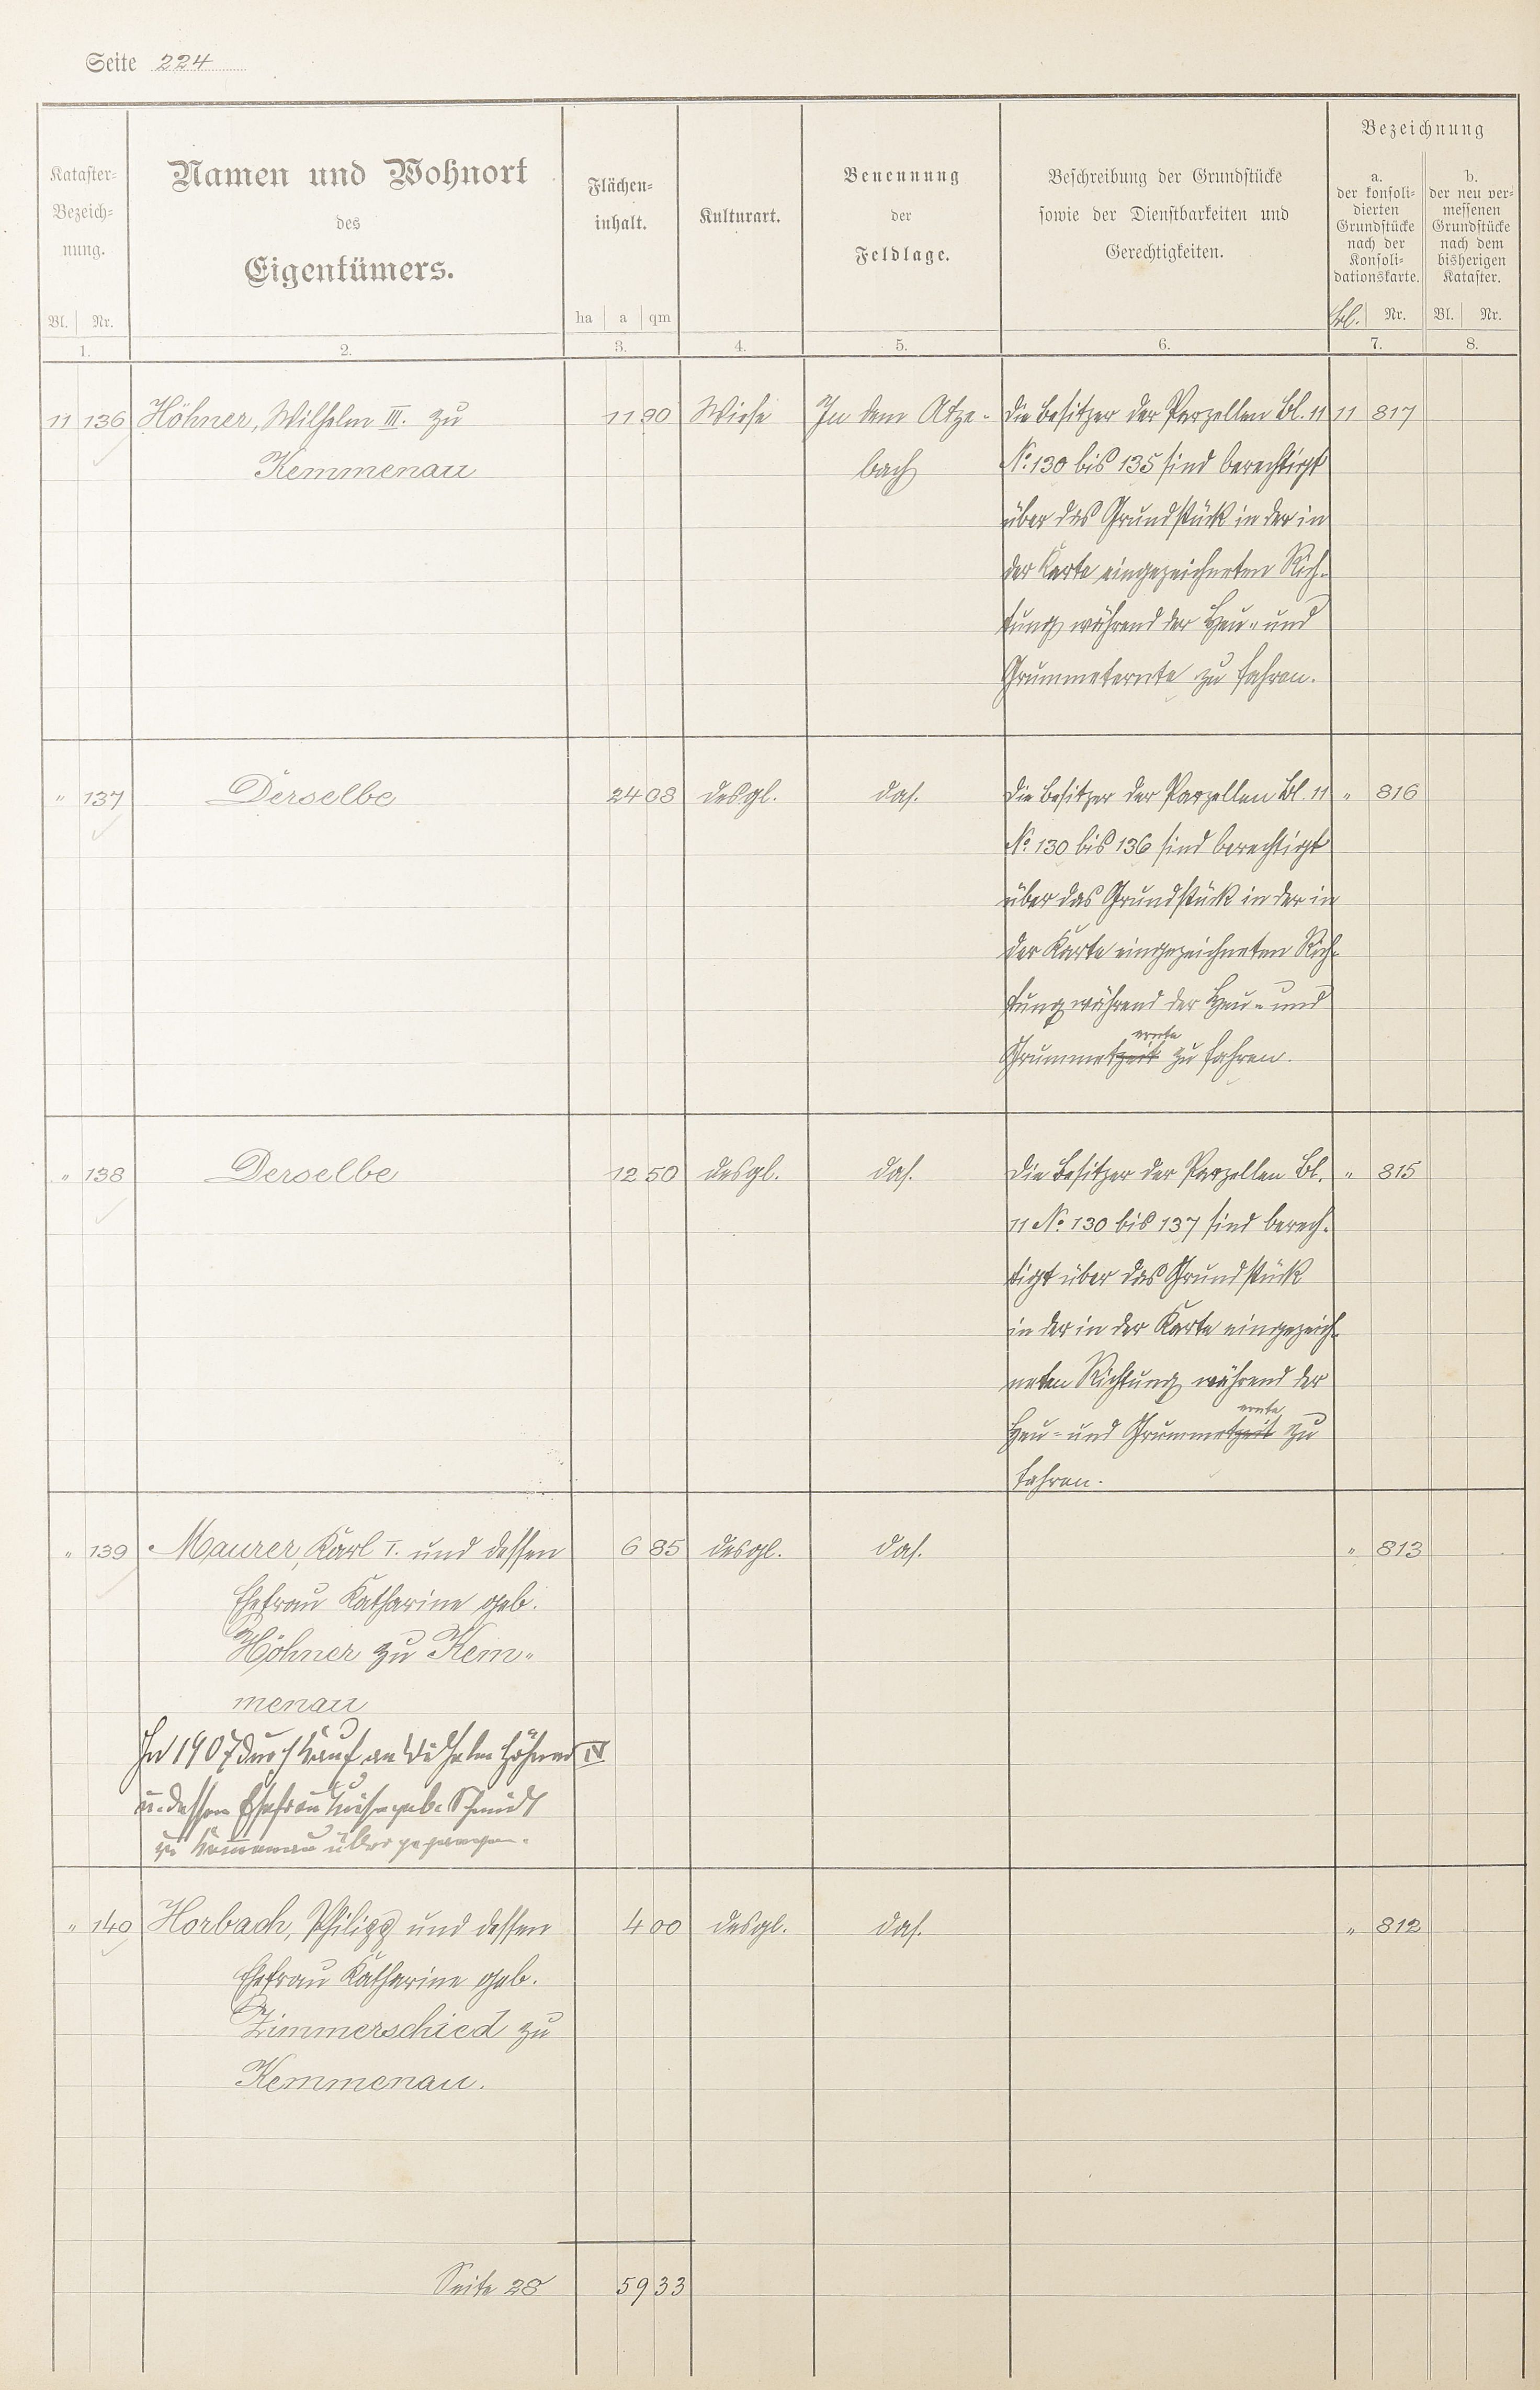 Seite 224
Kataster-
Bezeich-
nung.
Bl. Nr.
1.
Namen und Wohnort
des
Eigentümers.
2.
Flächen-
inhalt.
ha a qm
3.
Kulturart.
4.
Benennung
der
Feldlage.
5.
Beschreibung der Grundstücke
sowie der Dienstbarkeiten und
Gerechtigkeiten.
6.
Bezeichnung
a.
der konsoli-
dierten
Grundstücke
nach der
Konsoli-
dationskarte.
Bl. Nr.
7.
b.
der neu ver-
messenen
Grundstücke
nach dem
bisherigen
Kataster.
Bl. Nr.
8.
11 136 Höhner, Wilhelm III. zu 11 90 Wiese In dem Atze- Die Besitzer der Parzellen Bl. 11 11 817
Kemmenau bach No. 130 bis 135 sind berechtigt
über das Grundstück in der in
der Karte eingezeichneten Rich-
tung während der Heu- und
Grummeternte zu fahren.
" 137 Derselbe 24 08 desgl. das. Die Besitzer der Parzellen Bl. 11 " 816
No. 130 bis 136 sind berechtigt
über das Grundstück in der in
der Karte eingezeichneten Rich-
tung während der Heu- und
ernte
Grummetzeit zu fahren.
" 138 Derselbe 12 50 desgl. das. Die Besitzer der Parzellen Bl. " 815
11 No. 130 bis 137 sind berech-
tigt über das Grundstück
in der in der Karte eingezeich-
neten Richtung während der
ernte
Heu- und Grummetzeit zu
fahren.
" 139 Maurer, Karl I. und dessen 6 85 desgl. das. " 813
Ehefrau Katharine geb.
Höhner zu Kem-
menau
In 1907 durch Kauf an Wilhelm Höhner IV
u. dessen Ehefrau Luise geb. Schmidt
zu Kemmenau übergegangen.
" 140 Horbach, Philipp und dessen 4 00 desgl. das. " 812
Ehefrau Katharine geb.
Zimmerschied zu
Kemmenau.
Seite 28 59 33